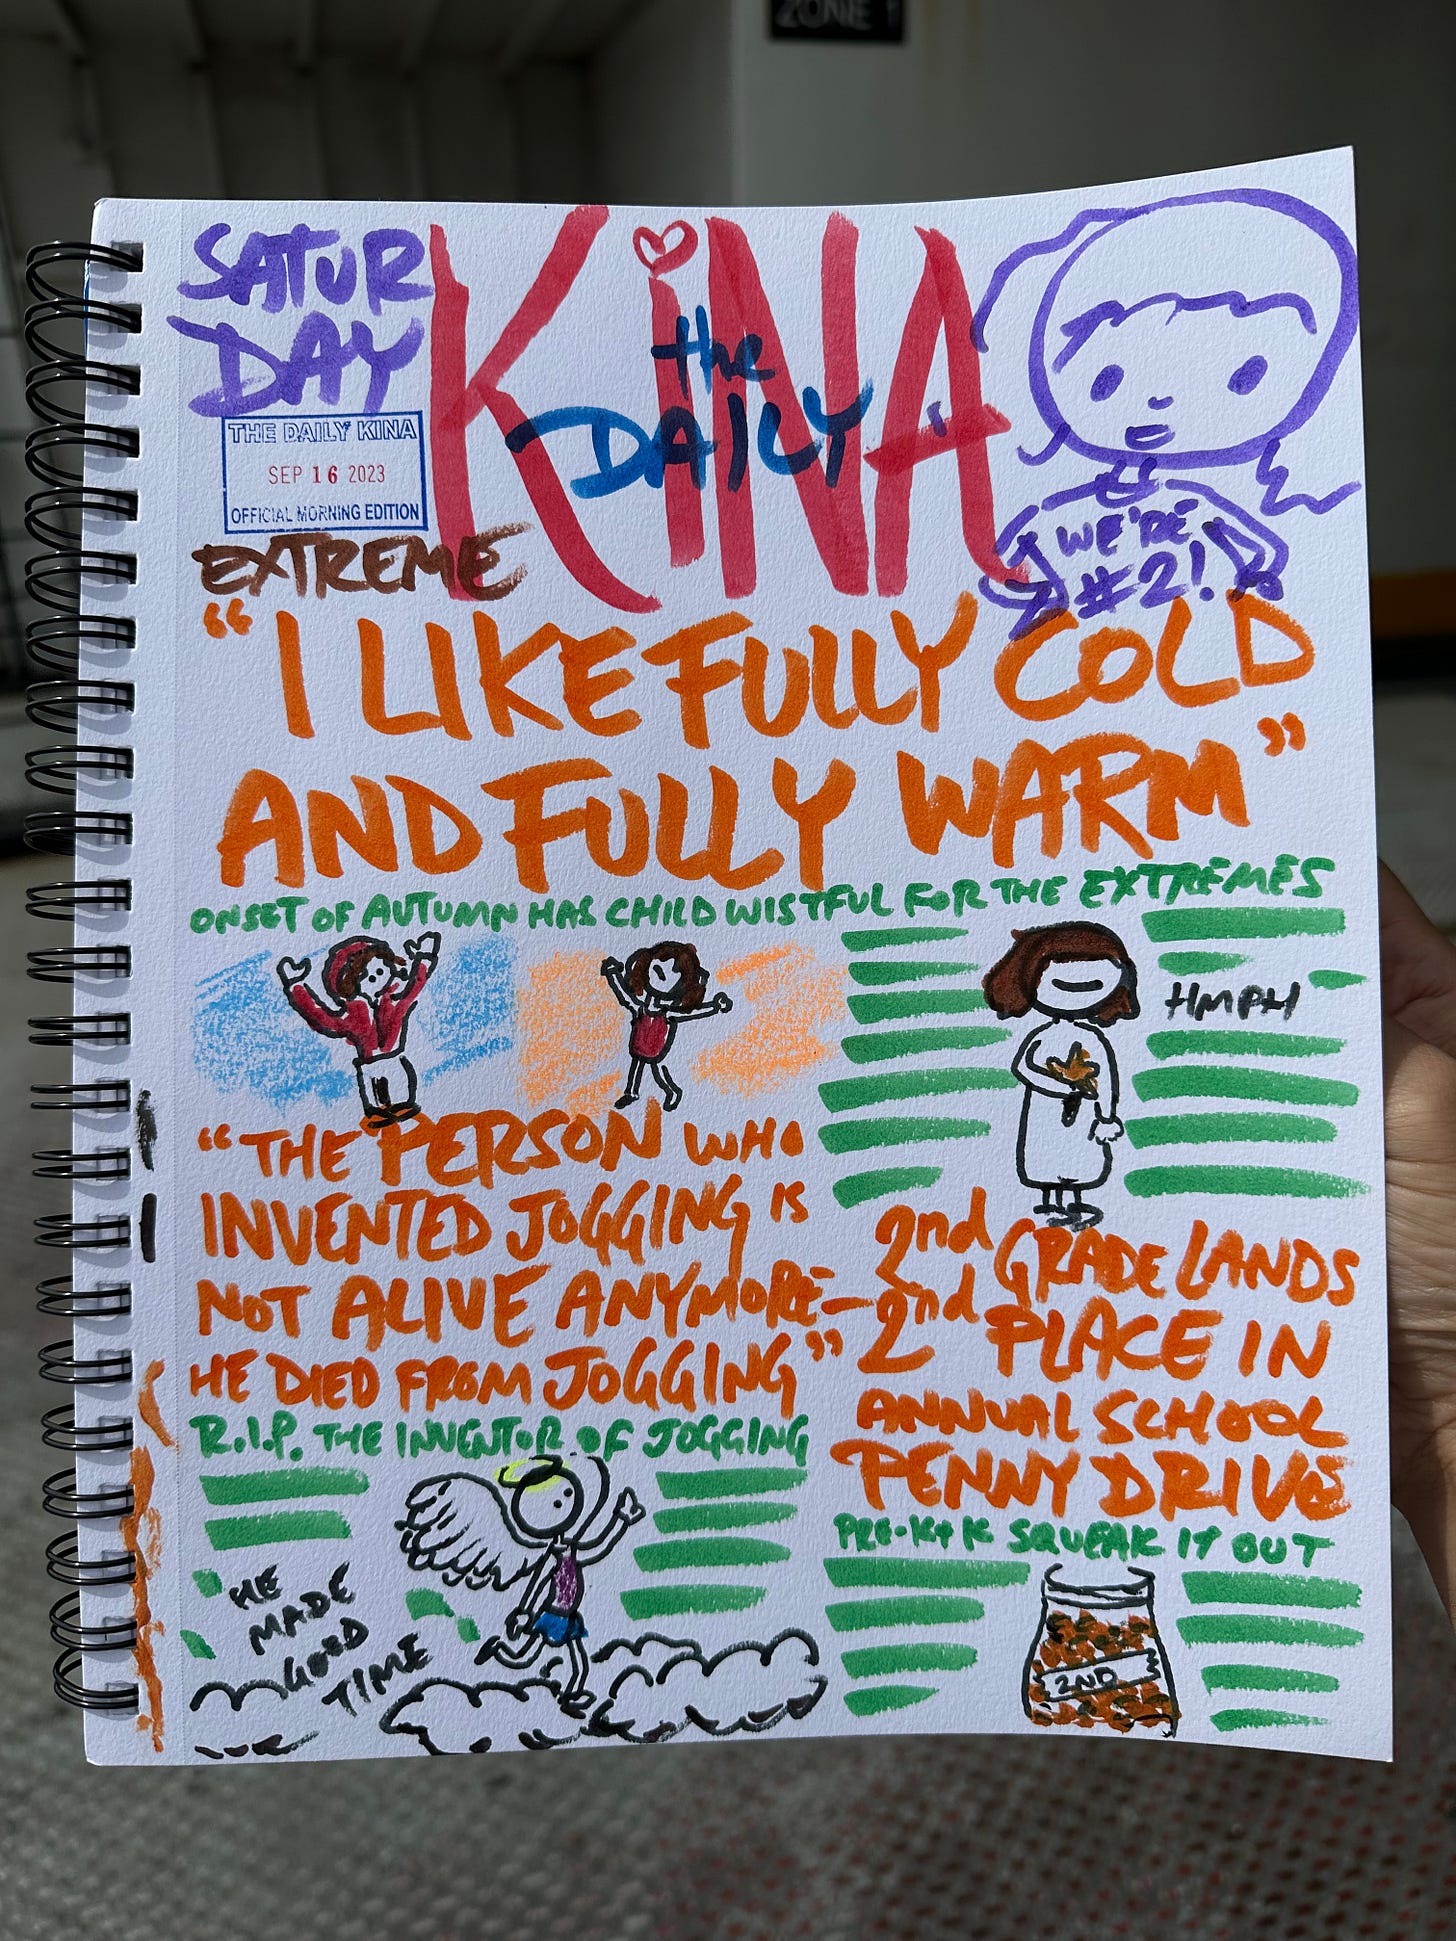 ZONE 1
SATUR
DAY
KiNA
the
DAILY
THE DAILY KINA
SEP 16 2023
OFFICIAL MORNING EDITION
EXTREME
WE'RE
#2!
"I LIKE FULLY COLD
AND FULLY WARM"
ONSET OF AUTUMN HAS CHILD WISTFUL FOR THE EXTREMES
HMPH
"THE PERSON WHO
INVENTED JOGGING IS
NOT ALIVE ANYMORE—
HE DIED FROM JOGGING"
R.I.P. THE INVENTOR OF JOGGING
HE
MADE
GOOD
TIME
2nd GRADE LANDS
2nd PLACE IN
ANNUAL SCHOOL
PENNY DRIVE
PRE-K + K SQUEAK IT OUT
2ND